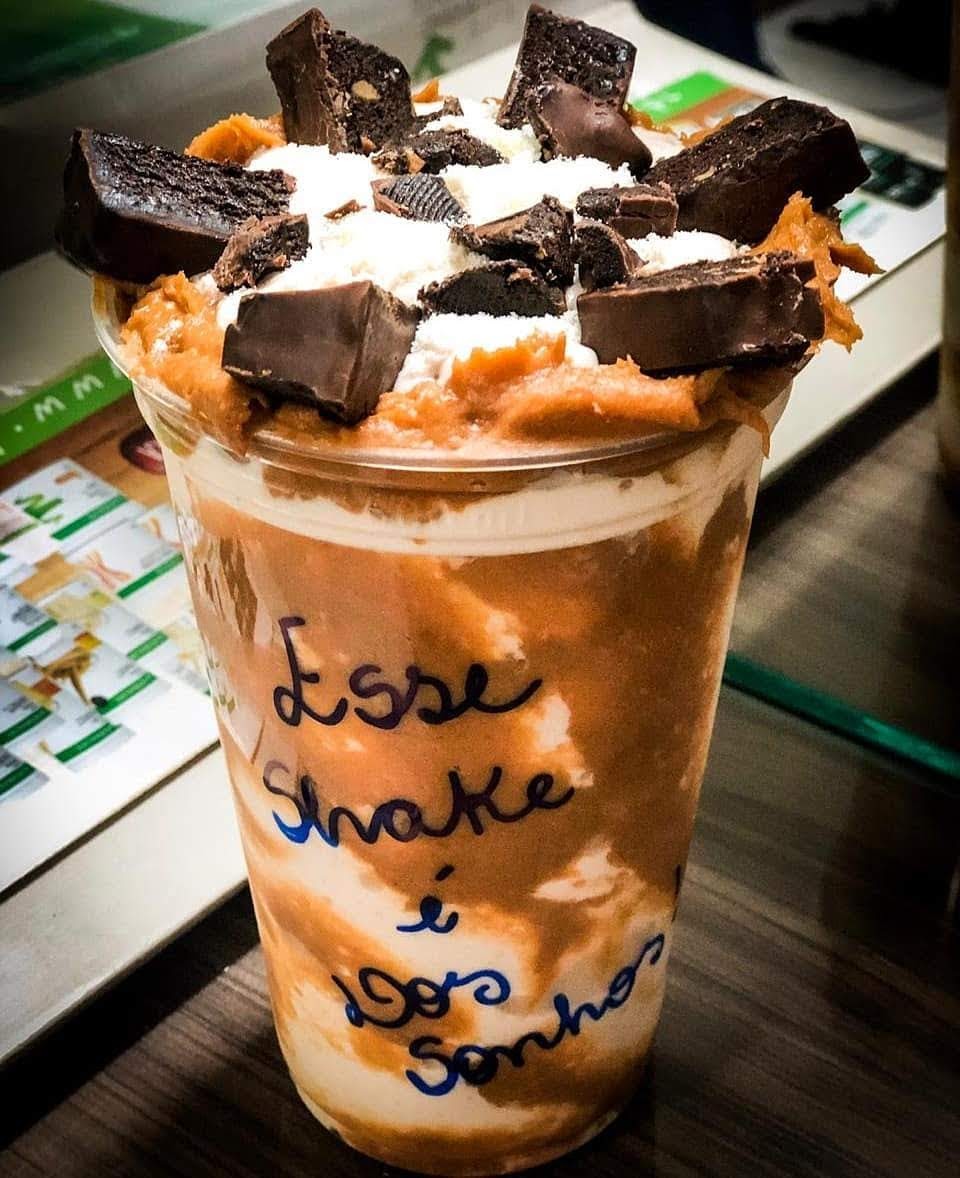 Esse
Shake
é
Dos
Sonhos!